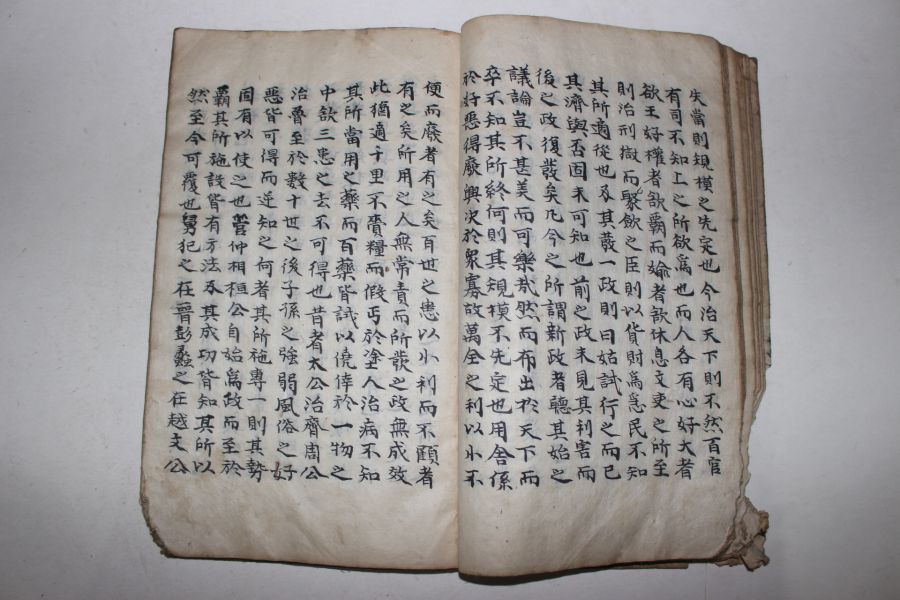 失當則規模之先定也今治天下則不然百官
有司不知上之所欲爲也而人各有心好大者
欲王好權者欲覇而媮者欲休息文吏之所至
則治刑獄而聚斂之臣則以貨財爲急民不知
其所適後也及其發一政則曰姑試行之而已
其濟與否固未可知也前之政未見其利害而
後之政復發矣凡今之所謂新政者聽其始之
議論豈不甚美而可樂哉然而布出於天下而
卒不知其所終何則其規模不先定也用舍係
於好惡得廢興决於衆寡故萬全之利以小不
便而廢者有之矣百世之患以小利而不顧者
有之矣所用之人無常責而所發之政無成效
此猶適千里不賫糧而假丐於塗人治病不知
其所當用之藥而百藥皆試以僥倖於一物之
中欲三患之去不可得也昔者太公治齊周公
治魯至於數十世之後子孫之強弱風俗之好
惡皆可得而逆知之何者其所施專一則其勢
固有以使之也管仲相桓公自始爲政而至於
覇其所施設皆有方法及其成功皆知其所以
然至今可覆也舅犯之在晋彭蠡之在越文公